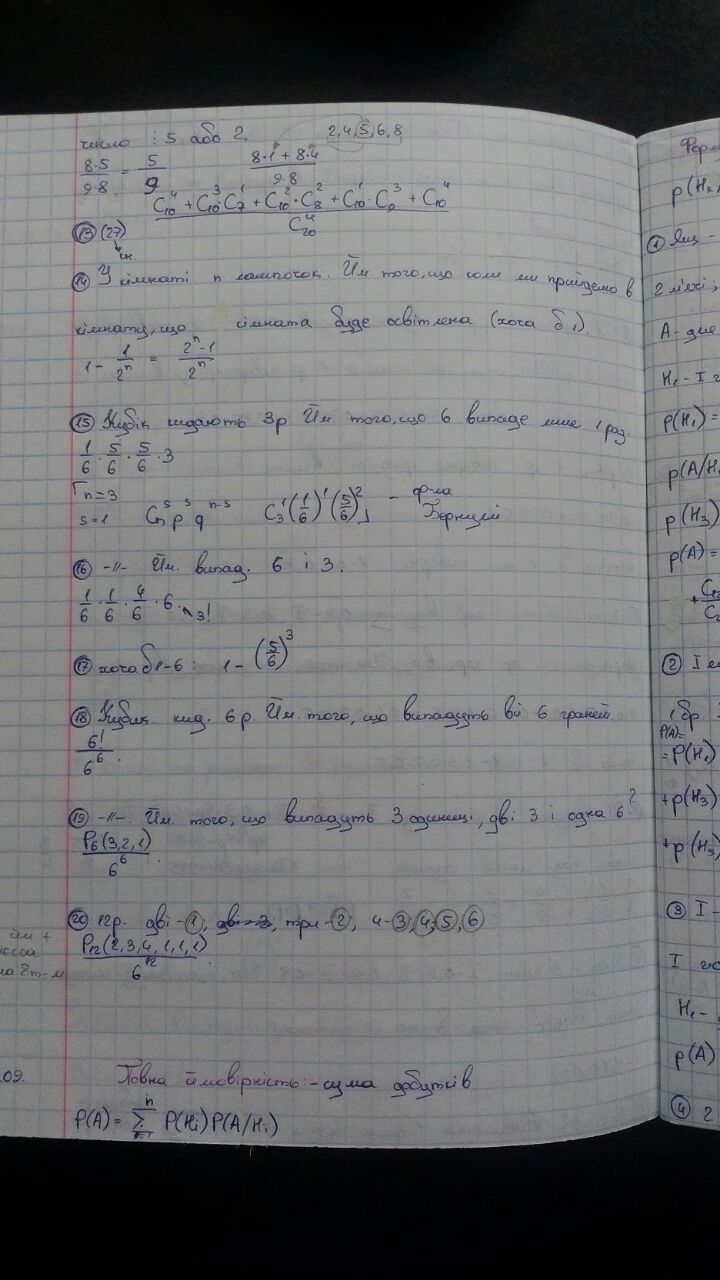 число : 5 або 2. 2,4,5,6,8
8·5/9·8 = 5/9 8·1 + 8·4/9·8
⑬ (27) C₁₀⁴ + C₁₀³ C₇¹ + C₁₀²·C₈² + C₁₀¹·C₉³ + C₁₀⁴ / C₂₀⁴
⑭ У кімнаті n лампочок. Йм того, що коли ми прийдемо в
кімнату, що кімната буде освітлена (хоча б 1).
1 - 1/2ⁿ = 2ⁿ-1/2ⁿ
⑮ Кубік кидають 3р. Йм того, що 6 випаде лише 1 раз.
1/6 · 5/6 · 5/6 · 3
n=3
s=1 Cₙˢ pˢ qⁿ⁻ˢ C₃¹ (1/6)¹ (5/6)² - ф-ла
Бернуллі
⑯ -//- Йм. випад. 6 і 3.
1/6 · 1/6 · 4/6 · 6. 3!
⑰ хоча б 1-6 : 1 - (5/6)³
⑱ Кубик кид. 6р. Йм. того, що випадуть всі 6 граней.
6!/6⁶.
⑲ -//-. Йм. того, що випадуть 3 одиниці, дві 3 і одна 6?
P₆(3,2,1)/6⁶.
⑳ 12р. дві - ①; дві - 3; три - ②; 4 - ③, ④, ⑤, ⑥
P₁₂(2,3,4,1,1,1)/6¹².
.09. Повна ймовірність: - сума добутків
P(A) = Σ P(Hᵢ) P(A/Hᵢ)
Форм
p(Hₖ
① Ящ -
2 м'ячі;
A - две
H₁ - I
p(H₁) =
p(A/H₁
p(H₃)
p(A) =
② I
P(A)=
= p(H₁)
+p(H₃)
+p(H₃
③ I -
I
H₁ -
p(A)
④ 2